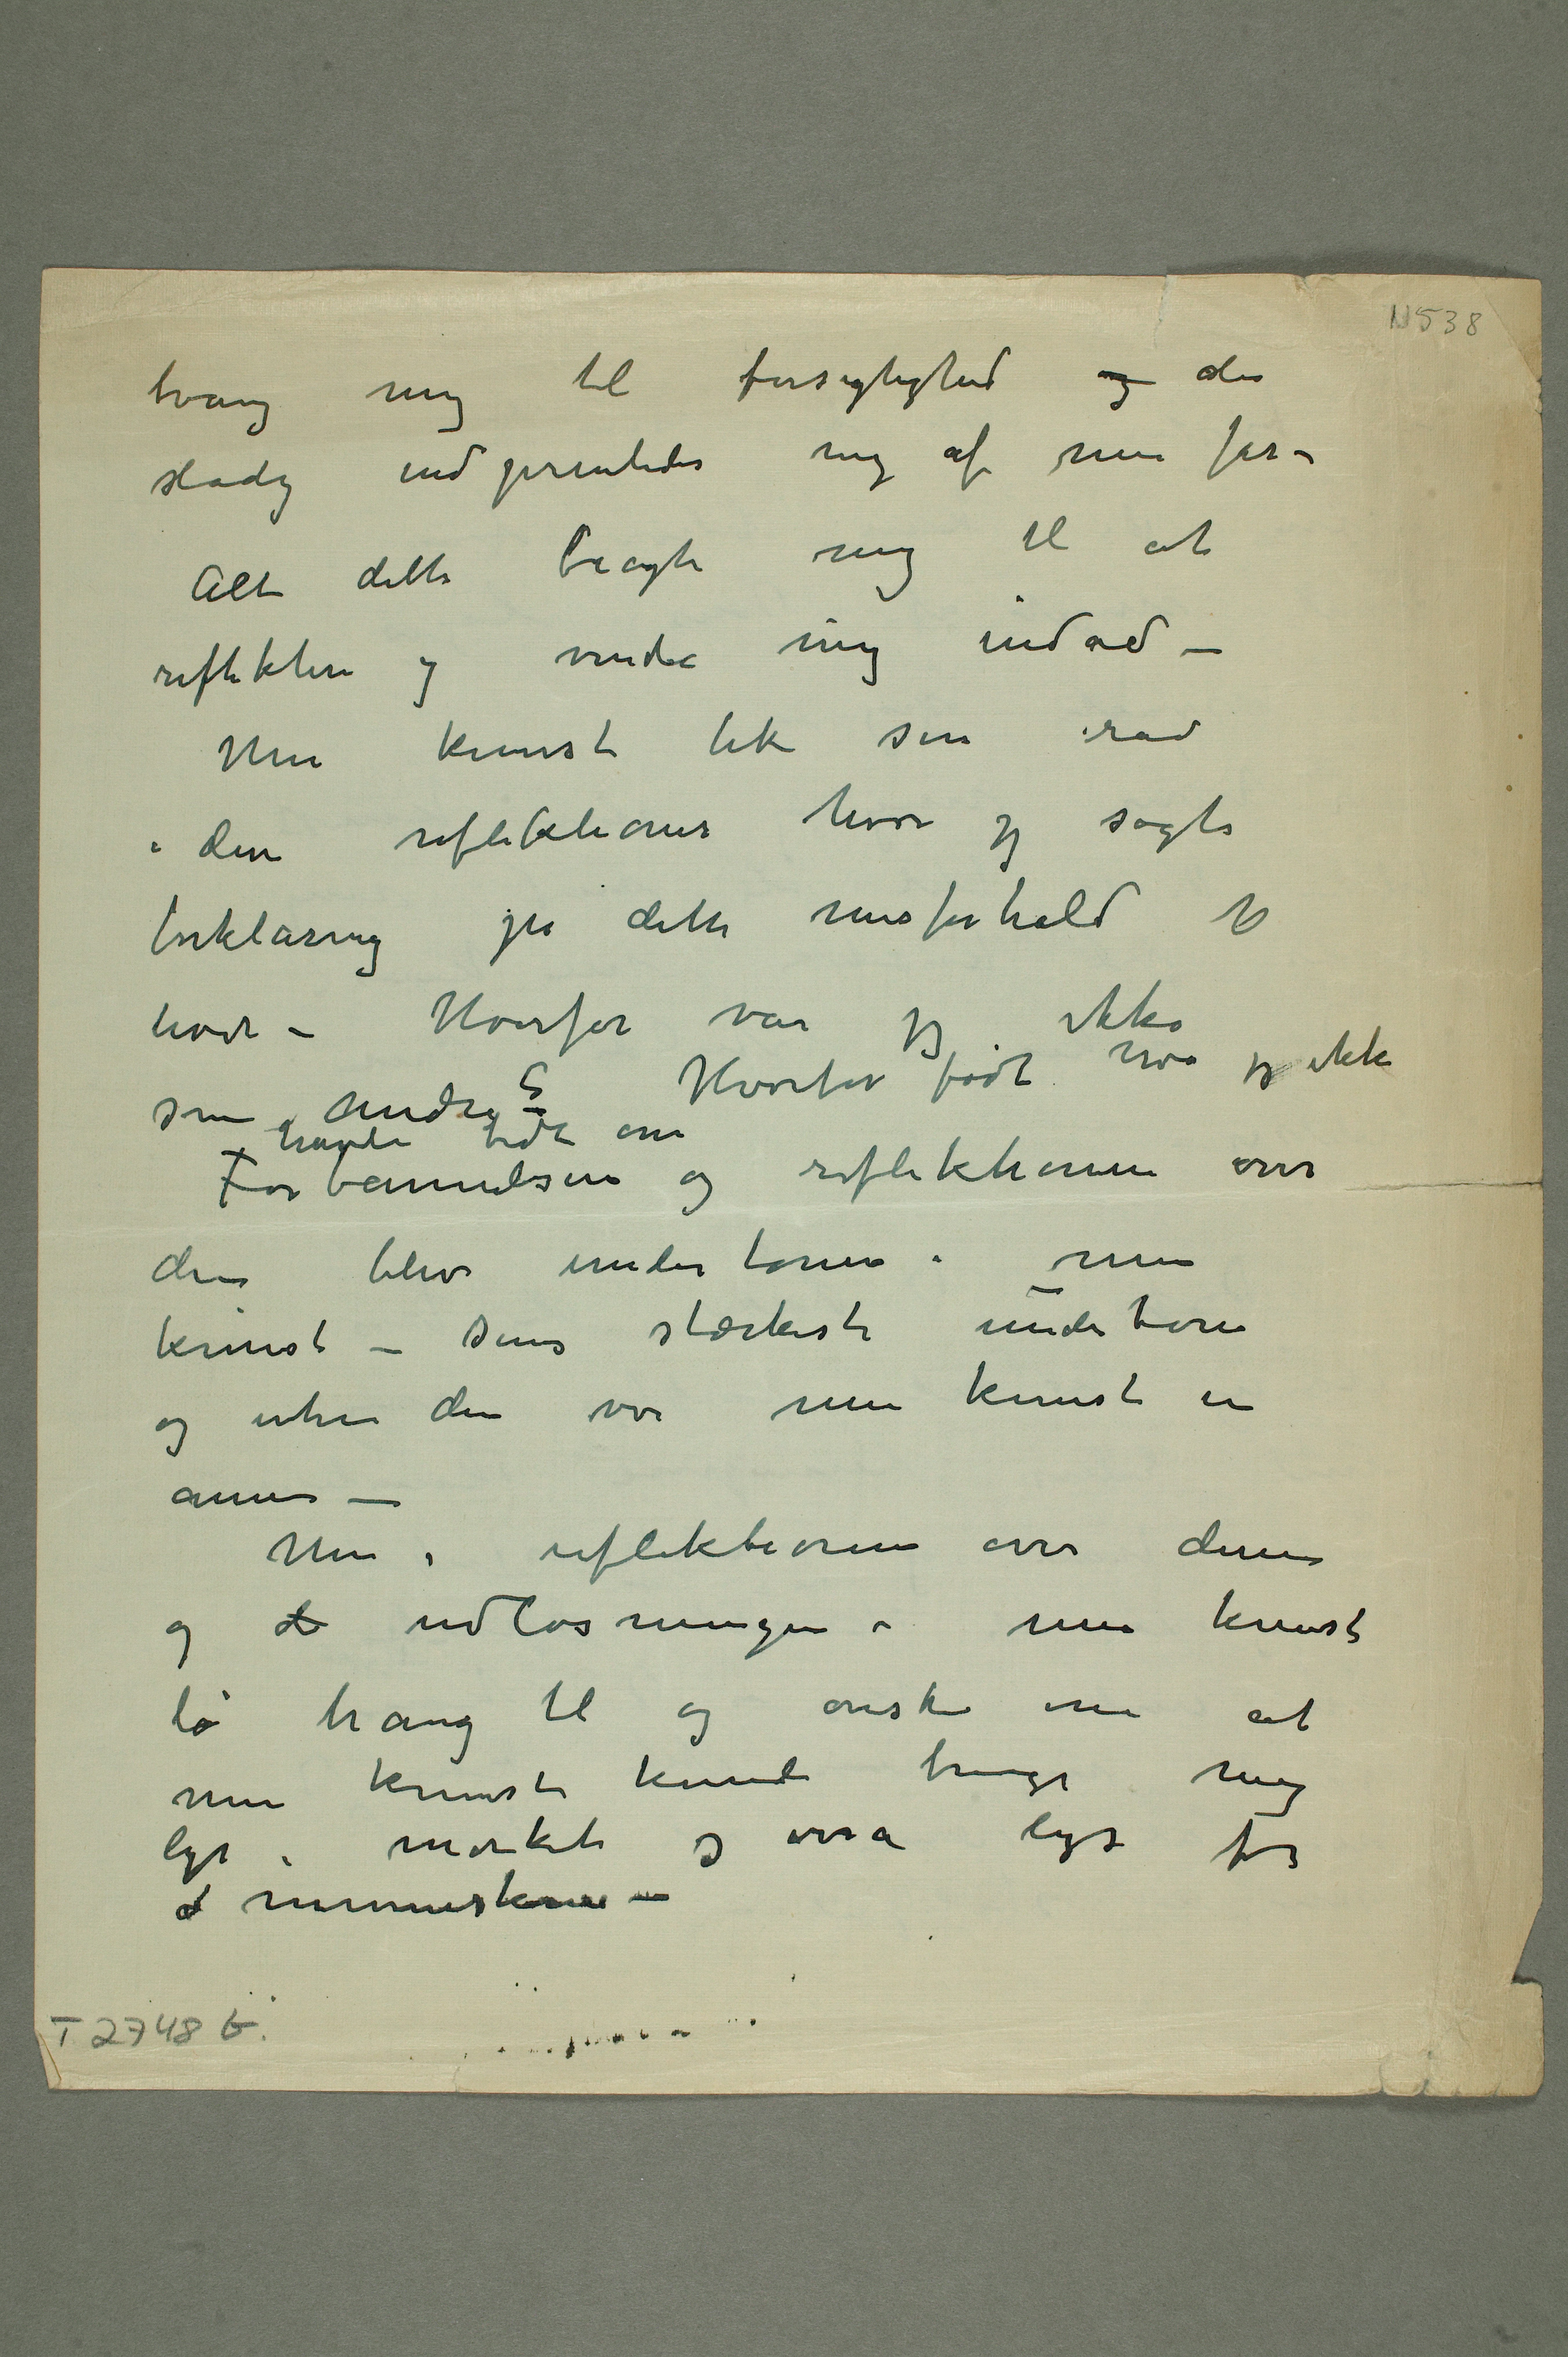 N 538
tvang mig til forsigtighed og der
stadig indprentedes mig af min far –
Alt dette bragte mig til at
reflektere og vende mig indad –
Min kunst fik sin rod
i den reflektioner hvor jeg søgte
forklaring på dette misforhold til
livet – Hvorfor var jeg ikke
som andre? Hvorfor født hva jeg ikke
havde bedt om
Forbannelsen og reflektionene over
den blev undertonen i min
kunst – dens stærkeste undertone
og uten den var min kunst en
annen –
Men i reflektionene over denne
og d udløsningen i min kunst
lå trang til og ønske om at
min kunst kunde bringe mig
lys i mørket og også lys for
d menneskene –
T 2748 b.